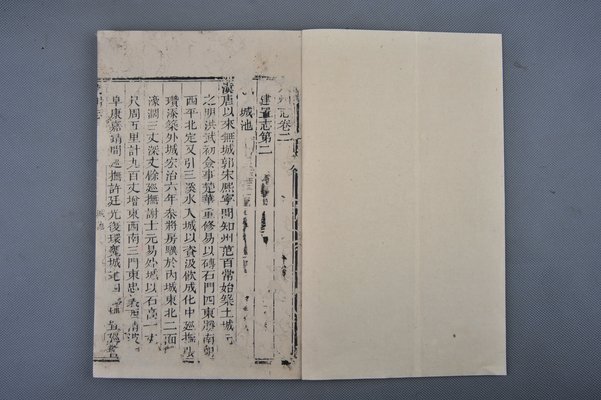 志卷二
建置志第二
城池
漢唐以來無城郭宋熙寧間知州范百常始築土城元
之明洪武初僉事楚華重修易以磚石門四東南
西平北定又引三溪水入城以資汲飲成化中巡撫
瓚添築外城宏治六年參將房驥於內城東北二面
濠濶三丈深丈餘巡撫謝士元易外城以石高一丈
尺周五里計九百丈增東西南三門東忠西清
阜康嘉靖間巡撫許廷光後環甕城
城池